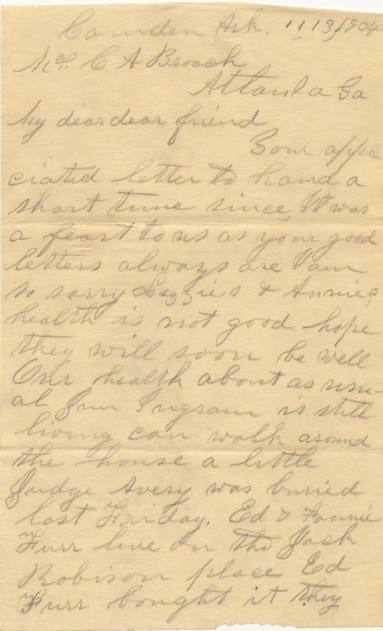 Camden Ark. 11 13/904
Mr. C A Broach
Atlanta Ga
My dear dear friend
Your appre
ciated letter to hand a
short time since, It was
a feast to us as your good
letters always are I am
so sorry Lizzies & Annies
health is not good hope
they will soon be well
Our health about as usu-
al Jim Ingram is still
living can walk around
the house a little
Judge Avery was buried
last Friday. Ed & Fannie
Furr live on the Jack
Robison place Ed
Furr bought it they